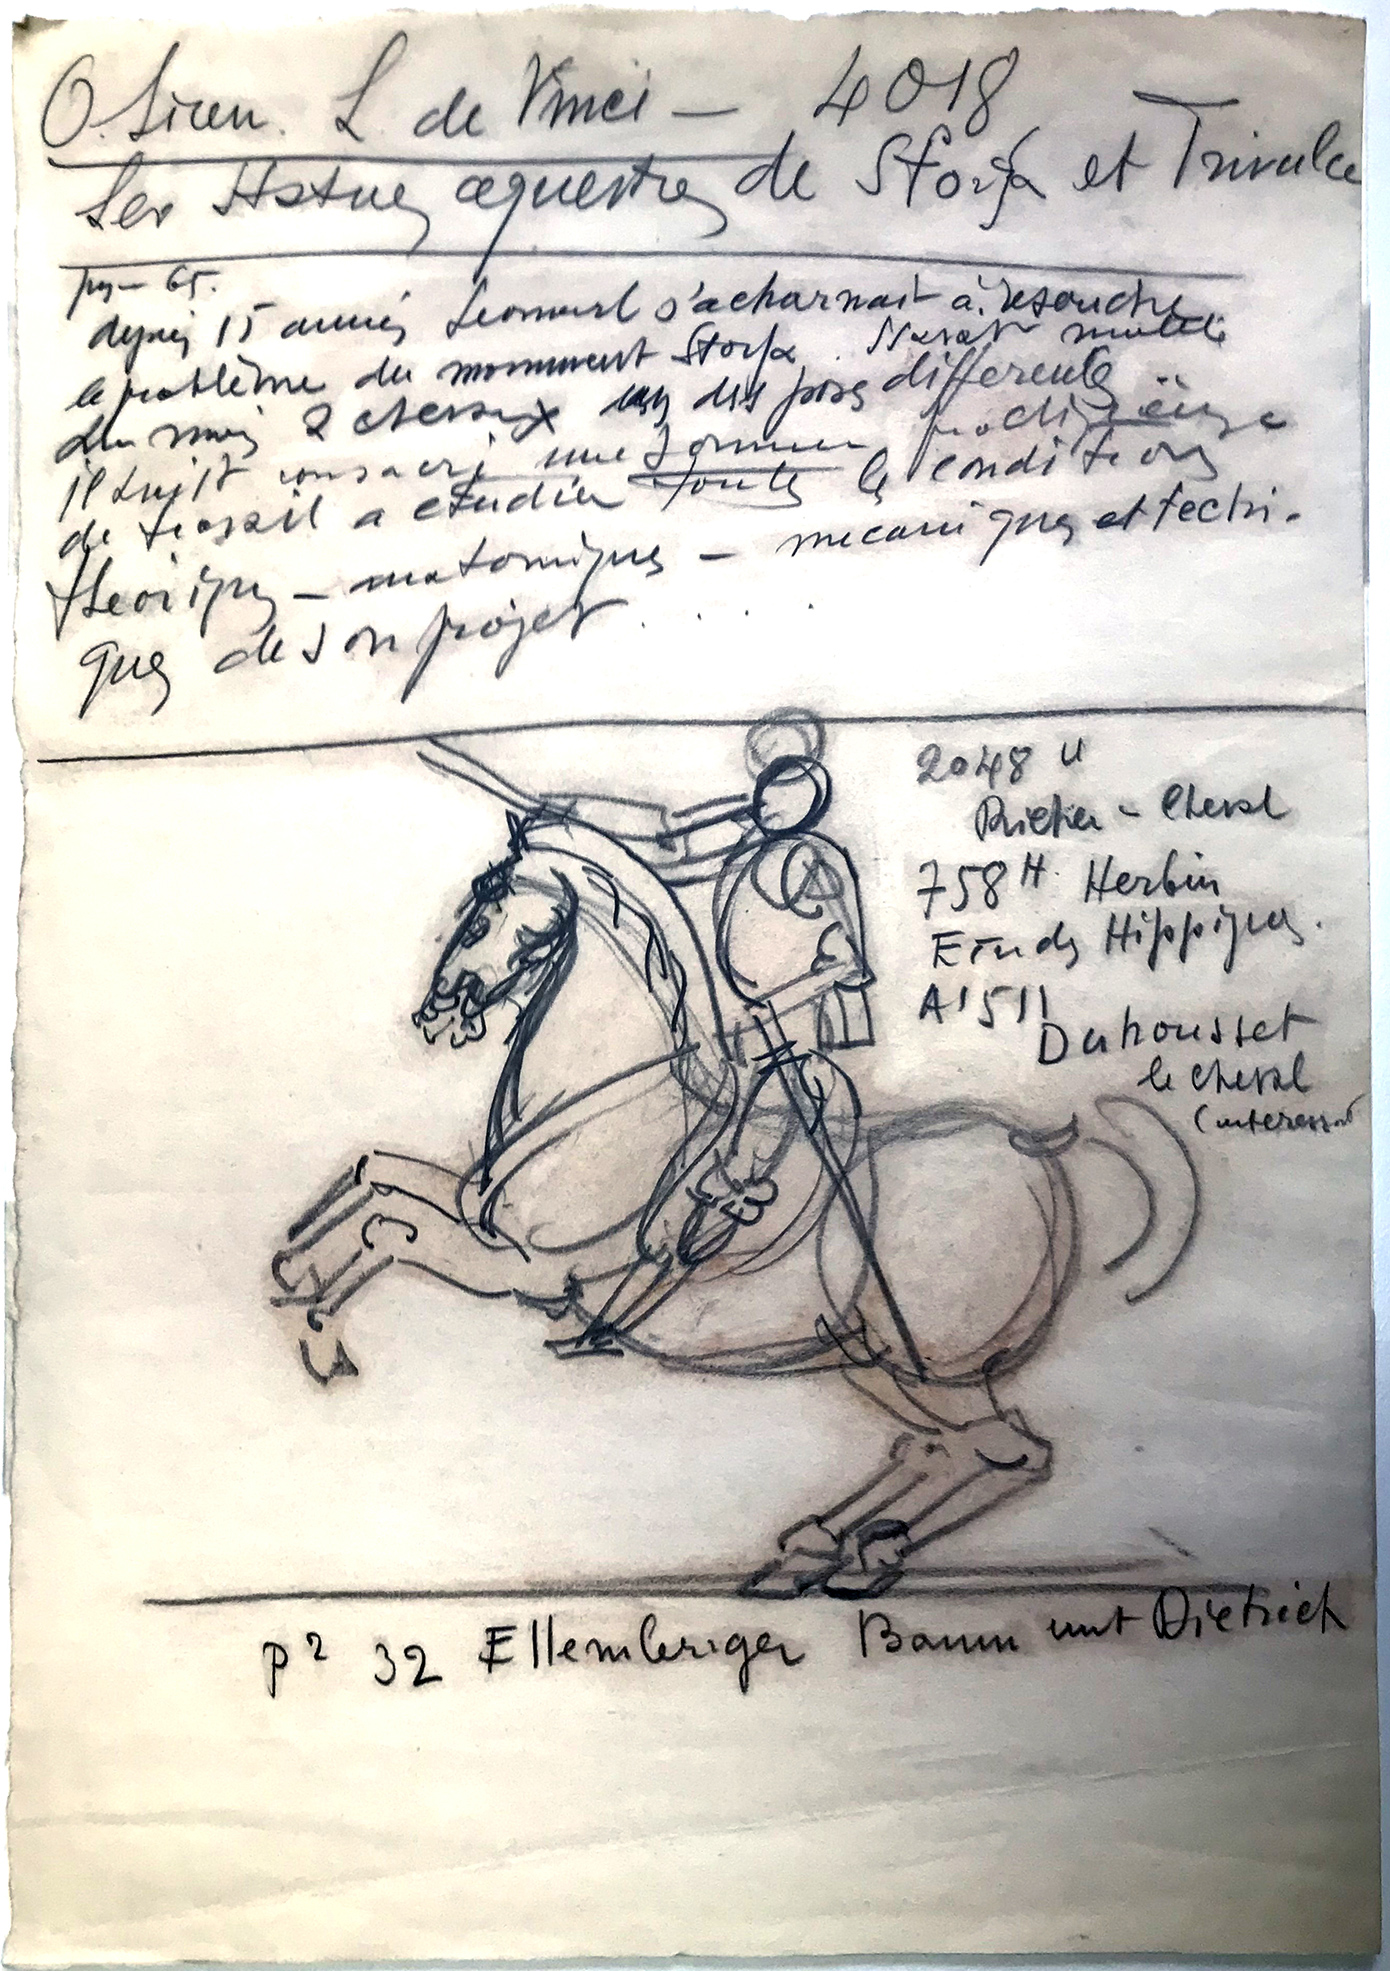 O. Siren. L. de Vinci — 4018
Les Statues equestres de Storfa et Trivulce
pg — 65.
depuis 15 années Leonard s'acharnait à resoudre
le problème du monument Storfa. Il avait modelé
au moins 2 chevaux dans des poses differentes
il avait consacré une somme prodigieuse
de travail a etudier toutes les conditions
theoriques — anatomiques — mecaniques et techni-
ques de son projet . . . .
2048 u
Richer - Cheval
758 H. Herbin
Etudes Hippiques.
A1511
Duhousset
le cheval
(interessant
p2 32 Ellemberger Baum unt Dietrich